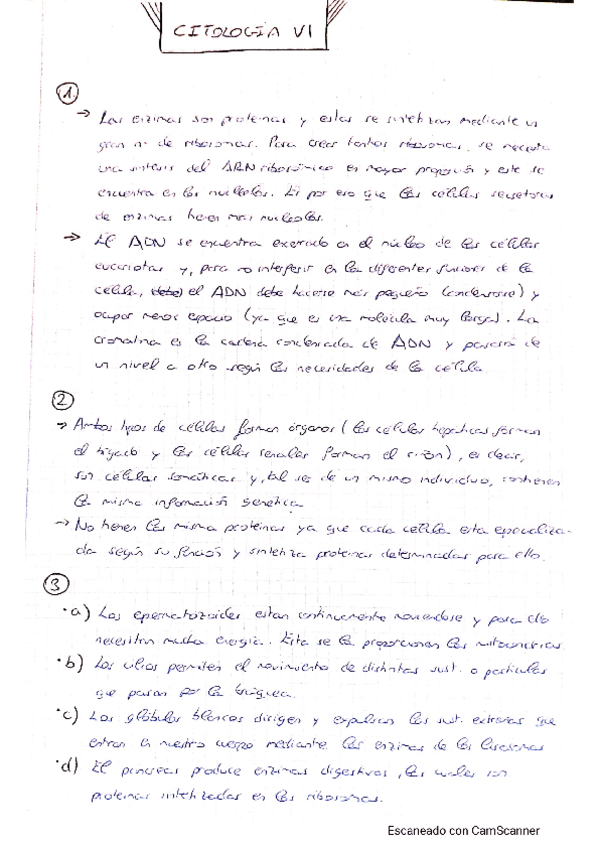 CITOLOGÍA VI
1.
→ Las enzimas son proteínas y estas se sintetizan mediante un
gran nº de ribosomas. Para crear tantos ribosomas, se necesita
una síntesis del ARN ribosómico en mayor proporción y este se
encuentra en los nucleolos. Es por eso que las células secretoras
de enzimas tienen más nucleolos.
→ El ADN se encuentra encerrado en el núcleo de las células
eucariotas y, para no interferir en las diferentes funciones de la
célula, el ADN debe hacerse más pequeño (condensarse) y
ocupar menos espacio (ya que es una molécula muy larga). La
cromatina es la cadena condensada de ADN y pasará de
un nivel a otro según las necesidades de la célula.
2
→ Ambos tipos de células forman órganos (las células hepáticas forman
el hígado y las células renales forman el riñón), es decir,
son células somáticas y, al ser de un mismo individuo, contienen
la misma información genética.
→ No tienen las misma proteínas ya que cada célula esta especializa-
da según su función y sintetiza proteínas determinadas para ello.
3
· a) Los espermatozoides estan continuamente moviendose y para ello
necesitan mucha energía. Esta se la proporcionan las mitocondrias.
· b) Los cilios permiten el movimiento de distintas sust. o partículas
que pasan por la tráquea.
· c) Los glóbulos blancos dirigen y expulsan las sust. extrañas que
entran en nuestro cuerpo mediante las enzimas de los lisosomas
· d) El páncreas produce enzimas digestivos, las cuales son
proteínas sintetizadas en los ribosomas.
Escaneado con CamScanner